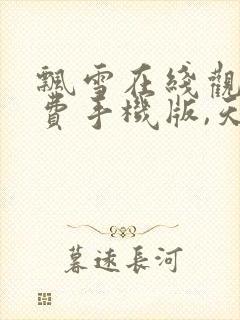 飄雪在綫觀
費手機版,天
暮遠長河